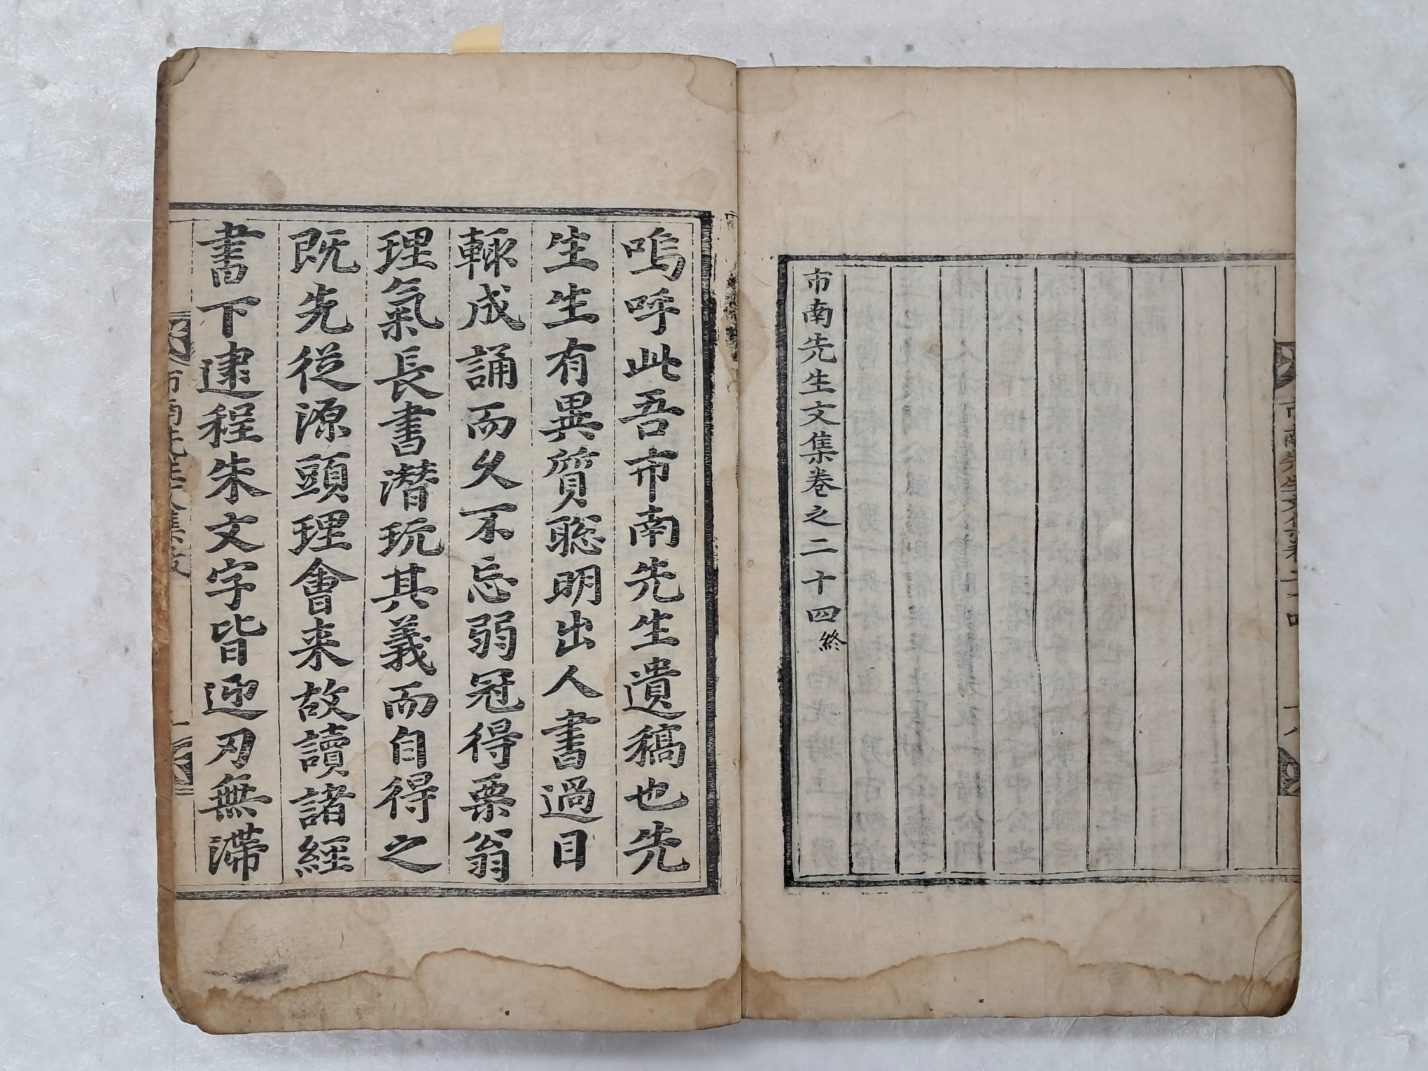 市南先生文集卷之二十四終
市南先生文集卷二十四
嗚呼此吾市南先生遺稿也先
生生有異質聡明出人書過目
輙成誦而久不忘弱冠得栗翁
理氣長書潜玩其義而自得之
既先從源頭理會来故讀諸經
書下逮程朱文字皆迎刃無滞
市南先生文集跋
一